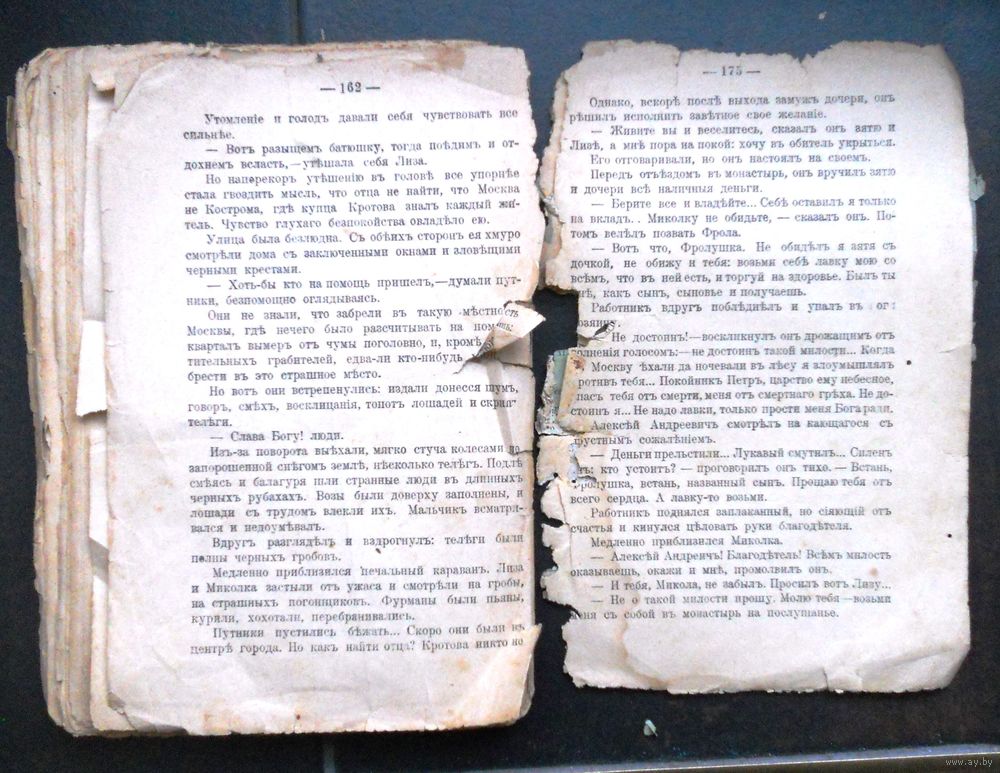 — 162 —
Утомленіе и голодъ давали себя чувствовать все
сильнѣе.
— Вотъ разыщемъ батюшку, тогда поѣдимъ и от-
дохнемъ всласть,—утѣшала себя Лиза.
Но наперекоръ утѣшенію въ головѣ все упорнѣе
стала гвоздить мысль, что отца не найти, что Москва
не Кострома, гдѣ купца Кротова зналъ каждый жи-
тель. Чувство глухаго безпокойства овладѣло ею.
Улица была безлюдна. Съ обѣихъ сторонъ ея хмуро
смотрѣли дома съ заключенными окнами и зловѣщими
черными крестами.
— Хоть-бы кто на помощь пришелъ,—думали пут-
ники, безпомощно оглядываясь.
Они не знали, что забрели въ такую мѣстность
Москвы, гдѣ нечего было разсчитывать на
кварталъ вымеръ отъ чумы поголовно, и, кромѣ
тительныхъ грабителей, едва-ли кто-нибудь
брести въ это страшное мѣсто.
Но вотъ они встрепенулись: издали донесся шумъ,
говоръ, смѣхъ, восклицанія, топотъ лошадей и скрип
телѣги.
— Слава Богу! люди.
Изъ-за поворота выѣхали, мягко стуча колесами по
запорошенной снѣгомъ землѣ, нѣсколько телѣгъ. Подлѣ
смѣясь и балагуря шли странные люди въ длинныхъ
черныхъ рубахахъ. Возы были доверху заполнены, и
лошади съ трудомъ влекли ихъ. Мальчикъ всматри-
вался и недоумѣвалъ.
Вдругъ разглядѣлъ и вздрогнулъ: телѣги были
полны черныхъ гробовъ.
Медленно приблизился печальный караванъ. Лиза
и Миколка застыли отъ ужаса и смотрѣли на гробы,
на страшныхъ погонщиковъ. Фурманы были пьяны,
курили, хохотали, перебрянивались.
Путники пустились бѣжать... Скоро они были въ
центрѣ города. Но какъ найти отца? Кротова никто не
— 175 —
Однако, вскорѣ послѣ выхода замужъ дочери, онъ
рѣшилъ исполнить завѣтное свое желаніе.
— Живите вы и веселитесь, сказалъ онъ зятю и
Лизѣ, а мнѣ пора на покой: хочу въ обитель укрыться.
Его отговаривали, но онъ настоялъ на своемъ.
Передъ отъѣздомъ въ монастырь, онъ вручилъ зятю
и дочери всѣ наличныя деньги.
— Берите все и владѣйте... Себѣ оставилъ я только
на вкладъ.. Миколку не обидьте, — сказалъ онъ. По-
томъ велѣлъ позвать Фрола.
— Вотъ что, Фролушка. Не обидѣлъ я зятя съ
дочкой, не обижу и тебя: возьми себѣ лавку мою со
всѣмъ, что въ ней есть, и торгуй на здоровье. Былъ ты
мнѣ, какъ сынъ, сыновье и получаешь.
Работникъ вдругъ поблѣднѣлъ и упалъ въ ноги
хозяину.
Не достоинъ!—воскликнулъ онъ дрожащимъ отъ
волненія голосомъ:—не достоинъ такой милости... Когда
Москву ѣхали да ночевали въ лѣсу я злоумышлялъ
противъ тебя... Покойникъ Петръ, царство ему небесное,
спасъ тебя отъ смерти, меня отъ смертнаго грѣха. Не до-
стоинъ я... Не надо лавки, только прости меня Бога ради.
Алексѣй Андреевичъ смотрѣлъ на кающагося съ
грустнымъ сожалѣніемъ.
— Деньги прельстили... Лукавый смутилъ... Силенъ
онъ: кто устоитъ? — проговорилъ онъ тихо. — Встань,
Фролушка, встань, названный сынъ. Прощаю тебя отъ
всего сердца. А лавку-то возьми.
Работникъ поднялся заплаканный, но сіяющій отъ
счастья и кинулся цѣловать руки благодѣтеля.
Медленно приблизился Миколка.
— Алексѣй Андреичъ! Благодѣтель! Всѣмъ милость
оказываешь, окажи и мнѣ, промолвилъ онъ.
— И тебя, Микола, не забылъ. Просилъ вотъ Лизу...
— Не о такой милости прошу. Молю тебя—возьми
меня съ собой въ монастырь на послушанье.
www.ay.by